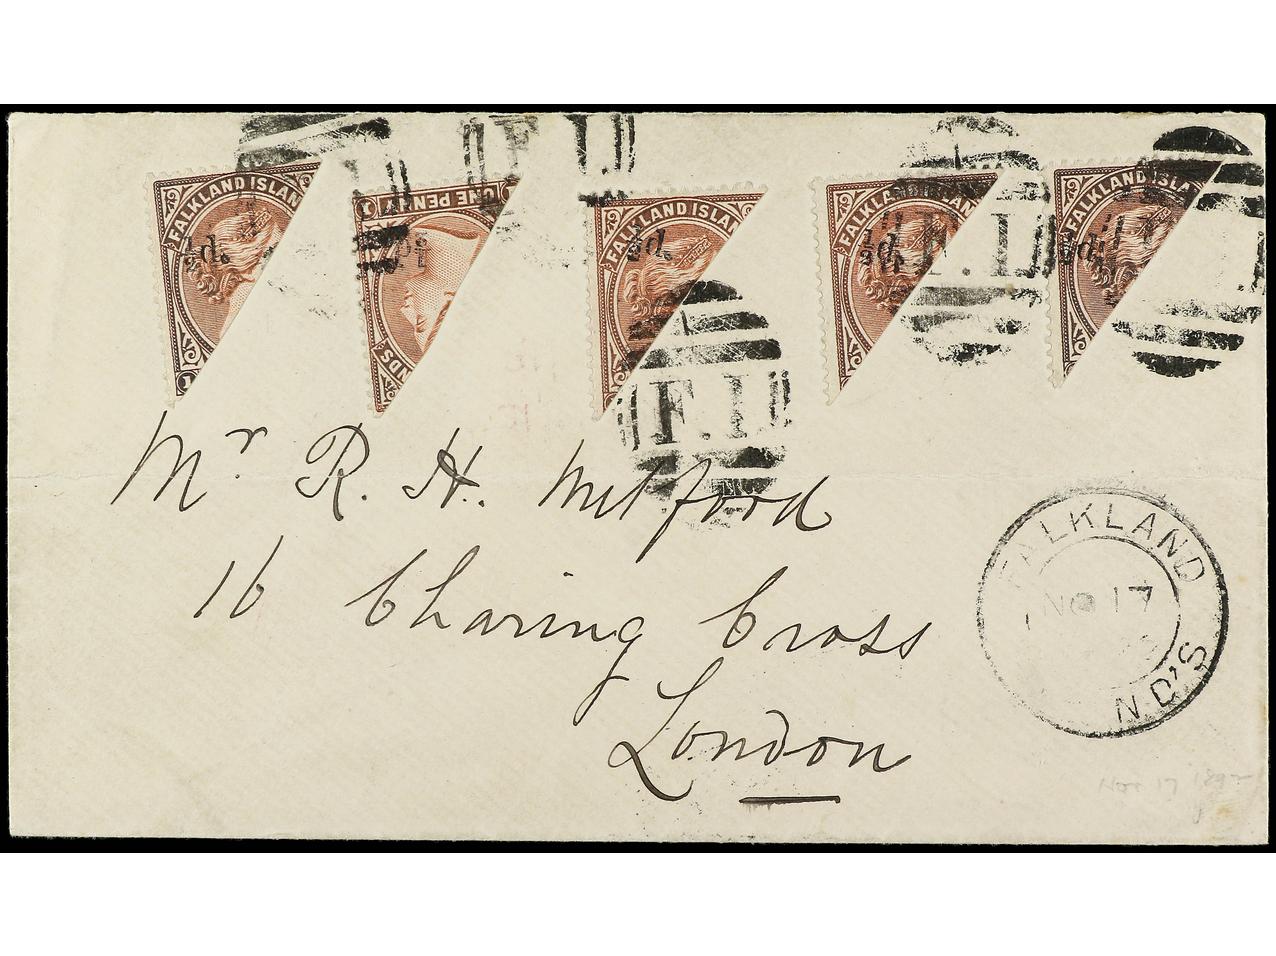 FALKLAND ISLAN
½d.
ONE PENNY
½d.
NDS
FALKLAND ISLAN
½d.
FALKLAND ISLAN
½d.
FALKLAND ISLA
½d.
F.I.
F.I.
F.I.
Mr R. H. Mitford
16 Charing Cross
London
FALKLAND
NO 17
ND'S
Nov 17 1892